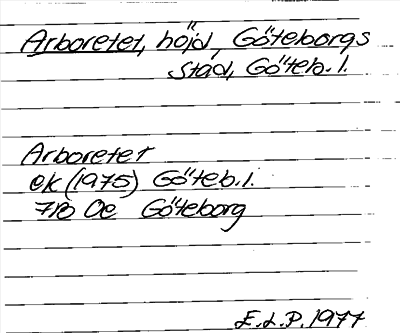 Arboretet, höjd, Göteborgs
stad, Göteb. l.
Arboretet
ek (1975) Göteb. l.
7B 0e Göteborg
E.L.P. 1977